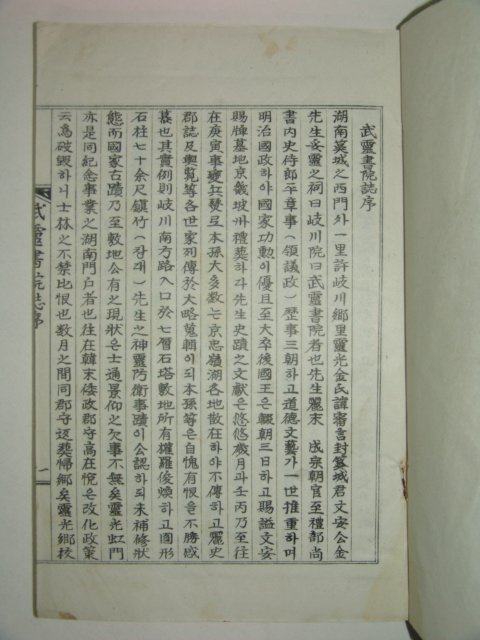 武靈書院誌序
湖南筽城之西門外一里許岐川鄕里靈光金氏諱審言封筽城君文安公金
先生妥靈之祠曰岐川院曰武靈書院者也先生麗末 成宗朝官至禮部尙
書內史侍郞平章事(領議政)歷事三朝하고道德文藝가一世推重하며
明治國政하야國家功勳이優且至大卒後國王은輟朝三日하고賜謚文安
賜牌墓地京畿坡州禮葬하다先生史蹟之文獻은悠悠歲月과壬丙乃至往
在庚寅事變兵燹로本孫大多數는京忠嶺湖各地散在하야不傳하고麗史
郡誌及輿覽等各世家列傳於大略蒐輯이되本孫等은自愧有恨을不勝感
慕也其實例則岐川南方路入口於七層石塔敷地所有權羅俊煥하고圓形
石柱七十余尺鎭竹(잔대)先生之神靈防衛事蹟이公認하되未補修狀
態而國家古蹟乃至敷地公有之現狀은士通景仰之欠事不無矣靈光虹門
亦是同紀念事業之湖南門戶者也往在韓末倭政郡守高在悅은改化政策
云爲破毁하니士林之不禁比恨也數月之間同郡守逆葬歸鄕矣靈光鄕校
武靈書院誌序
一